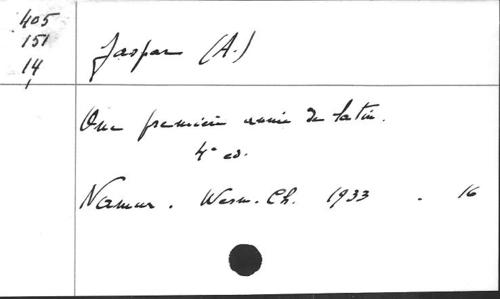 405
151
14
Jaspar (A.)
Une première année de latin.
4e ed.
Namur. Wesm.-Ch. 1933 . 16